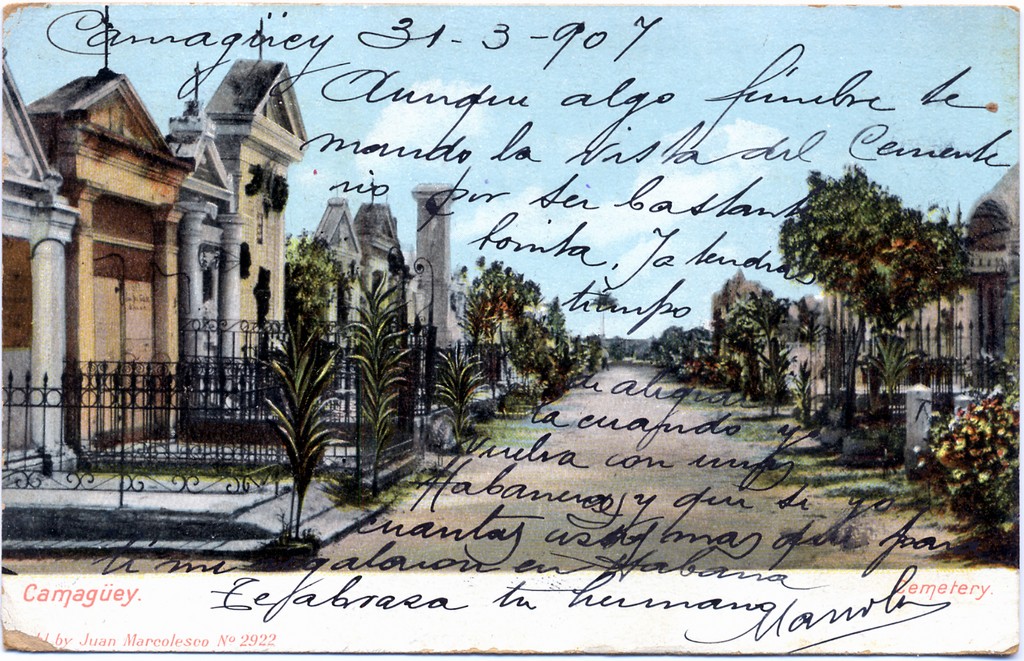 Camagüey 31-3-907
Aunque algo fúnebre te
mando la vista del Cemente
rio por ser bastante
bonita. Ya tendras
tiempo
de alegrar
la cuando yo
vuelva con mis
Habaneras y que se yo
cuantas cosas mas que para
ti me regalaron en Habana
Te abraza tu hermano Manolo
Camagüey. Cemetery.
by Juan Marcolesco Nº 2922